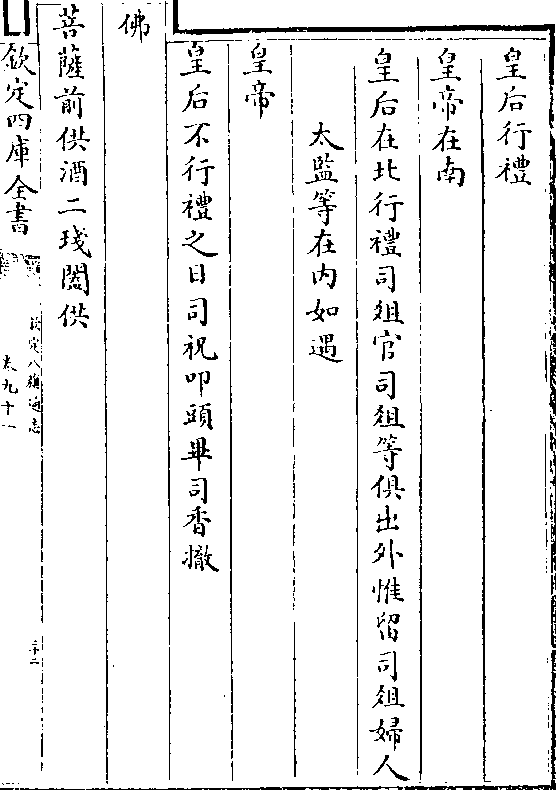 皇后行禮
皇帝在南
皇后在北行禮司俎官司俎等俱出外惟留司俎婦人
太監等在内如遇
皇帝
皇后不行禮之日司祝叩頭畢司香撤
佛
菩薩前供酒二琖闔供
欽定四庫全書
欽定八旗通志
卷九十一
三十二